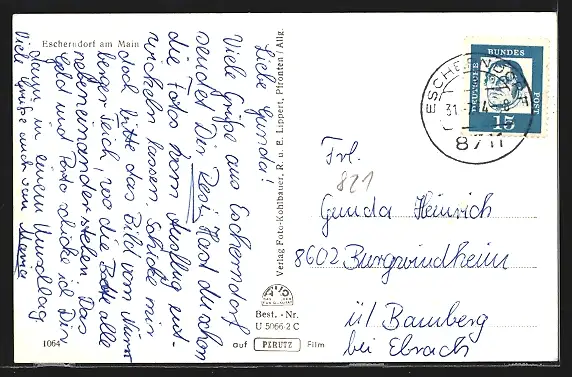 Escherndorf am Main
Liebe Gunda!
Viele Grüße aus Escherndorf
sendet Dir Resi. Hast du schon
die Fotos vom Ausflug ent-
wickeln lassen. Schicke mir
doch bitte das Bild vom Nürn
berger Teich, wo die Boote alle
nebeneinander stehen. Das
Geld und Porto schicke ich Dir
dann in einem Umschlag.
Viele Grüße auch von Mama
1064
Verlag Foto-Kohlbauer, R. u. E. Lippert, Pfronten/Allg.
Best.-Nr.
U 5066 2 C
auf PERUTZ Film
DEUTSCHE BUNDES POST
15
ESCHERNDORF
8711
821
Frl.
Gunda Heinrich
8602 Burgwindheim
ü/ Bamberg
bei Ebrach